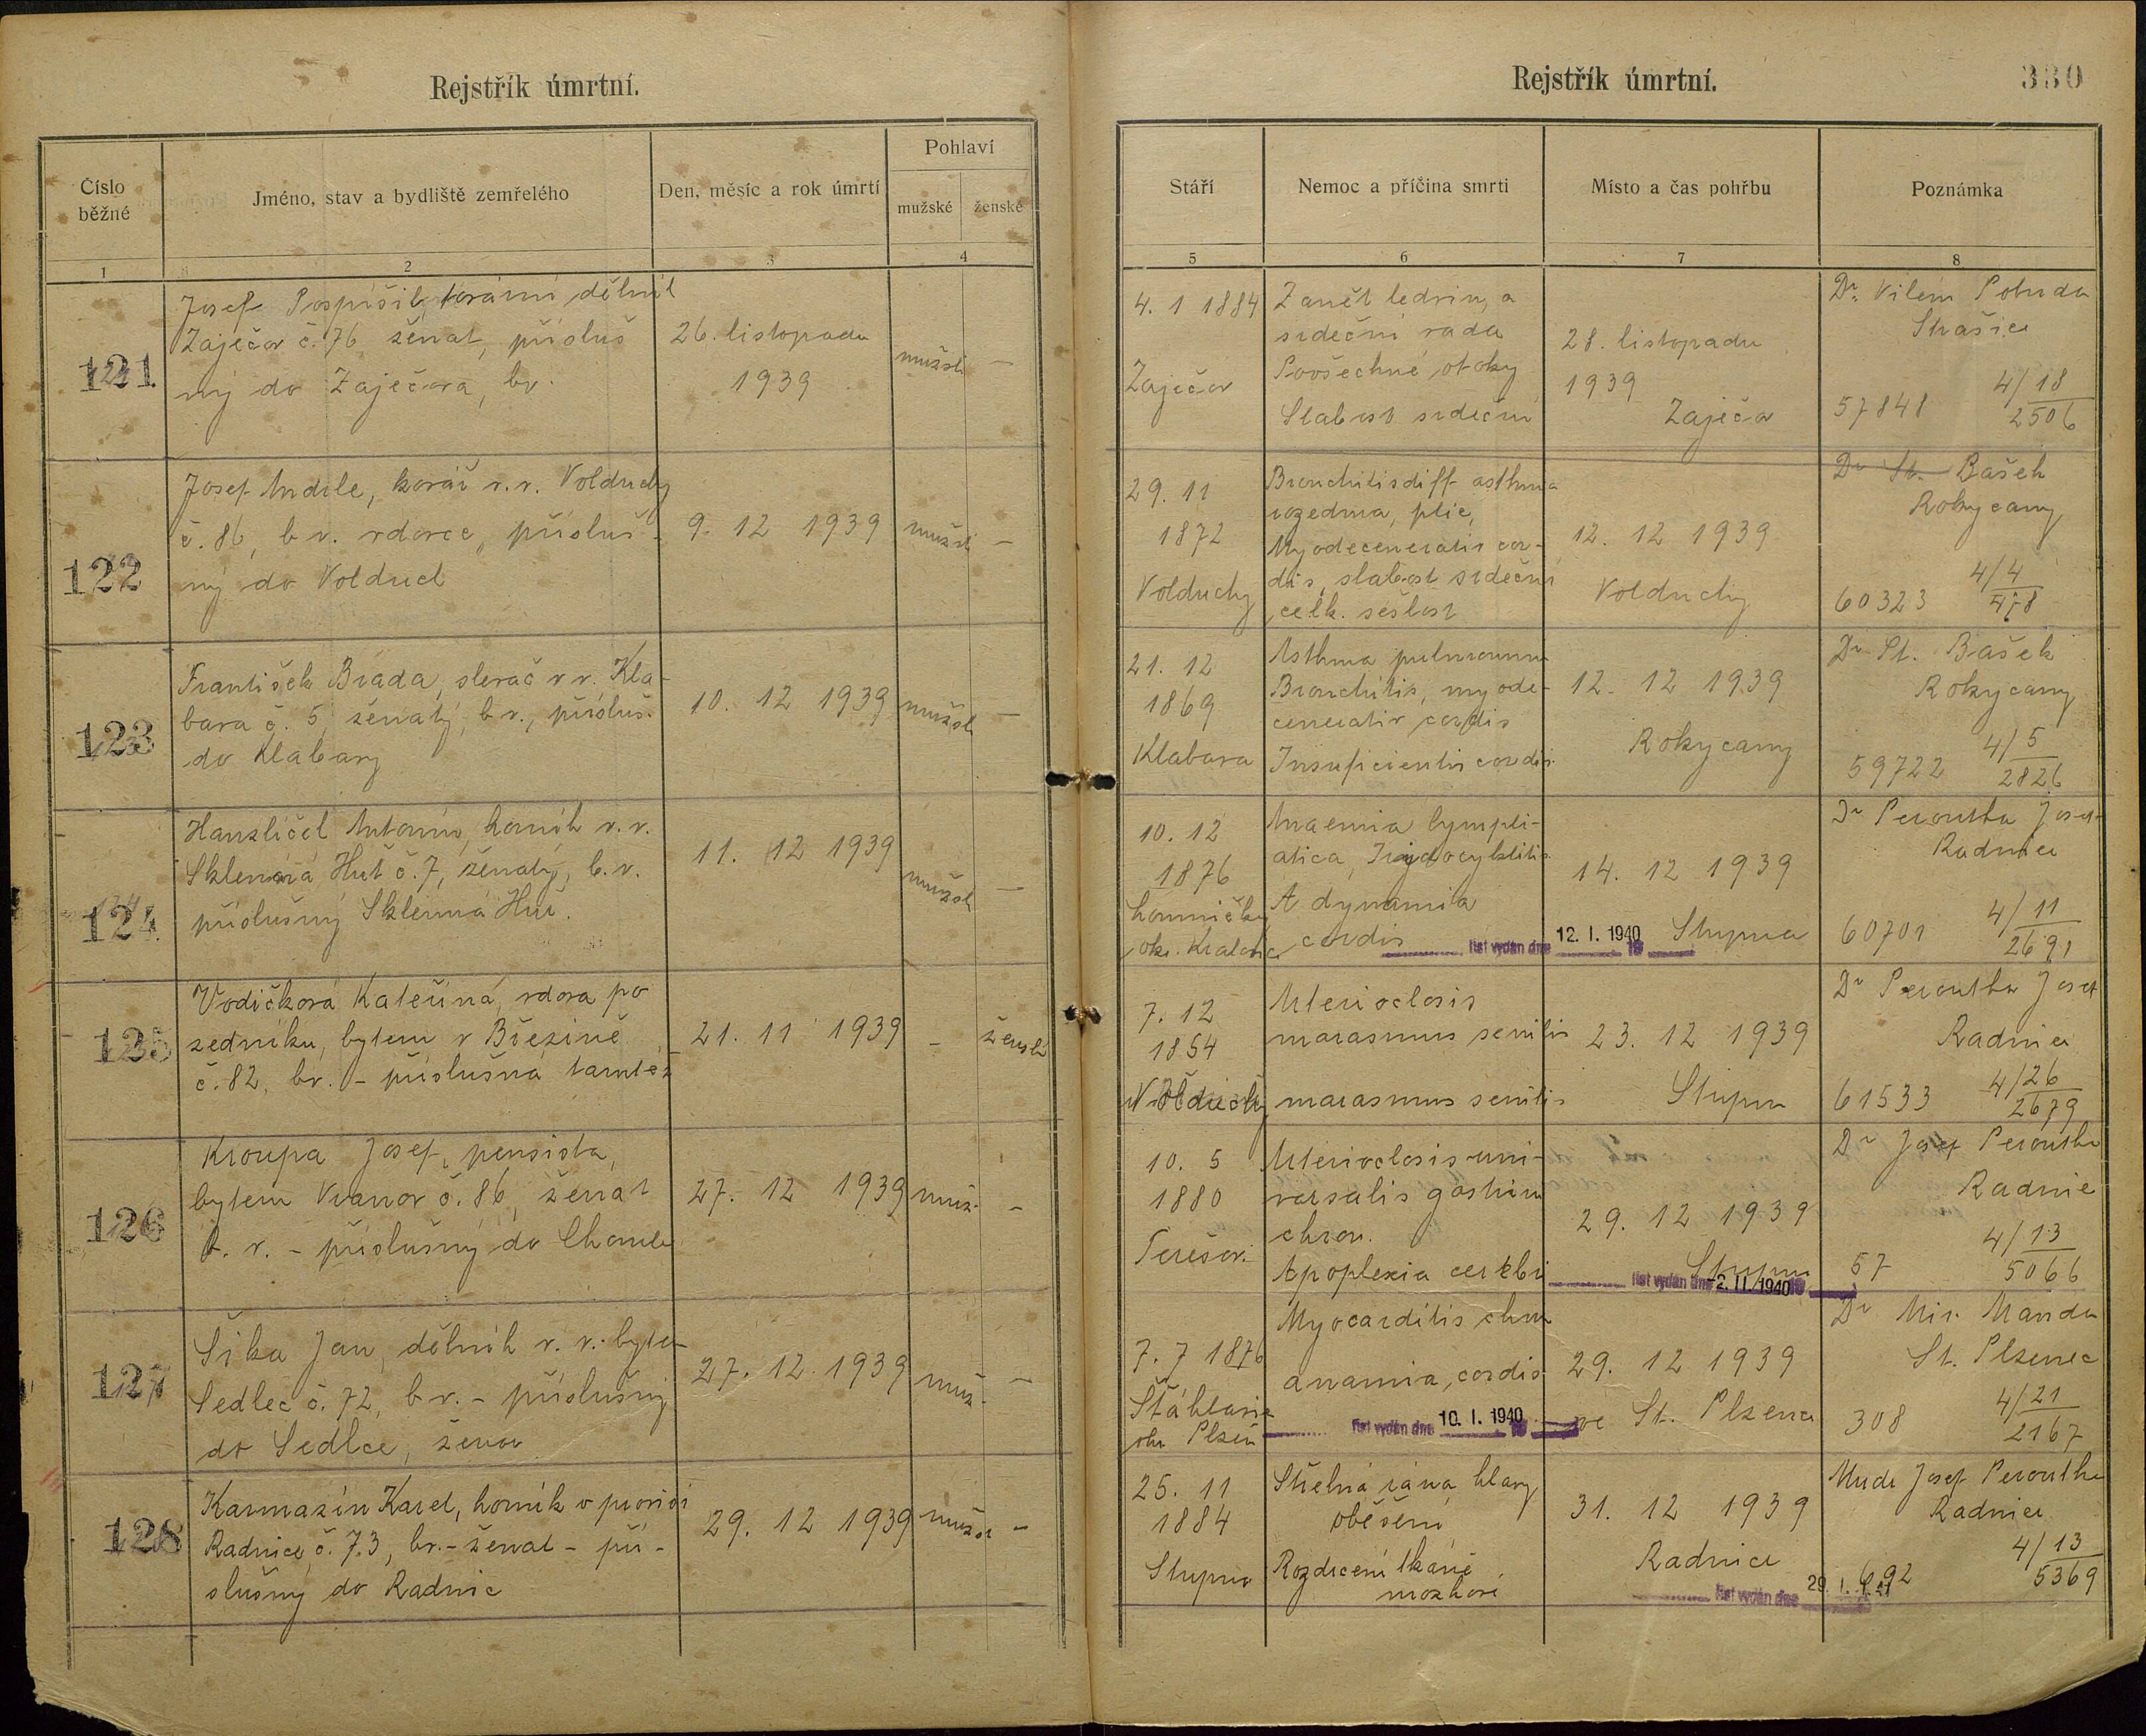 Rejstřík úmrtní.
Číslo běžné
Jméno, stav a bydliště zemřelého
Den, měsíc a rok úmrtí
Pohlaví
mužské
ženské
1
2
3
4
121.
Josef Pospíšil, tovární dělník
Zaječov č. 76, ženat, přísluš
ný do Zaječova, bv.
26. listopadu
1939
mužsk
—
122
Josef Andrle, kovář v. v. Volduchy
č. 86, b v. vdovec, přísluš-
ný do Volduch
9. 12 1939
mužsk
—
123
František Brada, slevač v v. Kla-
bava č. 5, ženatý, b v., přísluš.
do Klabavy
10. 12 1939
mužsk
—
124.
Hanzlíček Antonín, horník v. v.
Sklenná Huť č. 7, ženatý, b. v.
příslušný Sklenná Huť.
11. 12 1939
mužsk
—
125
Vodičková Kateřina, vdova po
zedníku, bytem v Březině
č. 82, bv. - příslušná tamtéž
21. 11 1939
-
žensk
126
Kroupa Josef, pensista,
bytem Vranov č. 86, ženat
b. v. - příslušný do
27. 12 1939
muž.
-
127
Šika Jan, dělník v. v. bytem
Sedlec č. 72, b v. - příslušný
do Sedlce, ženat
27. 12 1939
muž.
—
128
Karmazín Karel, horník v provisi
Radnice č. 73, bv. - ženat - pří-
slušný do Radnic
29. 12 1939
mužsk
-
Rejstřík úmrtní.
330
Stáří
Nemoc a příčina smrti
Místo a čas pohřbu
Poznámka
5
6
7
8
4. 1 1884
Zaječov
Zanět ledvin, a
srdeční vada
Povšechné otoky
Slabost srdeční
28. listopadu
1939
Zaječov
Dr. Vilém
Strašice
57848
4/18
2506
29. 11
1872
Volduchy
Bronchitis diff asthma
rozedma, plic,
Myodeceneratis cor-
dis, slabost srdeční
celk. sešlost
12. 12 1939
Volduchy
Dr St. Bašek
Rokycany
60323
4/4
478
21. 12
1869
Klabava
Asthma pulmonum
Bronchitis, myode-
cenerativ cordis
Insuficientis cordis
12. 12 1939
Rokycany
Dr St. Bašek
Rokycany
59722
4/5
2826
10. 12
1876
Lomnička
okr. Kralovice
Anaemia lymph-
atica, Iridocyklitis
Adynamia
cordis
14. 12 1939
Stupno
list vydán dne 12. I. 1940 19
Dr Peroutka Josef
Radnice
60701
4/11
2691
7. 12
1854
Arterioclosis
marasmus senilis
marasmus senilis
23. 12 1939
Stupno
Dr Peroutka Josef
Radnice
61533
4/26
2679
10. 5
1880
Terešov.
Arterioclosis uni-
versalis gastrium
chron.
Apoplexia cerebri
29. 12 1939
Stupno
list vydán dne 2. II. 1940 19
Dr Josef Peroutka
Radnic
57
4/13
5066
7. 7 1876
Štáhlavice
okr Plzeň
Myocarditis chron
anamia, cordis
29. 12 1939
ve St. Plzenci
list vydán dne 10. I. 1940 19
Dr Mir. Manda
St. Plzenec
308
4/21
2167
25. 11
1884
Stupno
Střelná rána hlavy
oběšení
Rozdrcení tkáně
mozkové
31. 12 1939
Radnice
list vydán dne
Mudr Josef Peroutka
Radnice
692
4/13
5369